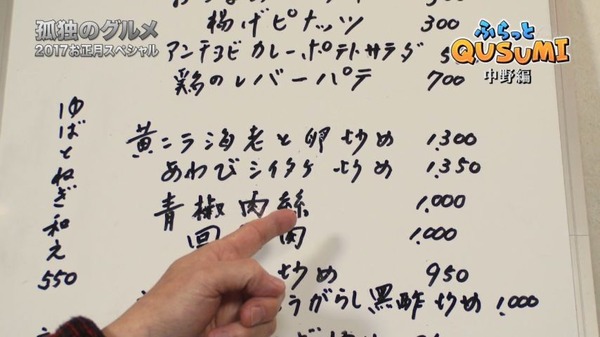 孤独のグルメ
2017お正月スペシャル
ふらっと
QUSUMI
中野編
揚げピナッツ 300
アンチョビカレーポテトサラダ 5
鶏のレバーパテ 700
黄ニラ海老と卵炒め 1,300
あわびシイタケ炒め 1,350
青椒肉絲 1,000
回 肉 1,000
炒め 950
うがらし黒酢炒め 1,000
ゆばとねぎ和え 550